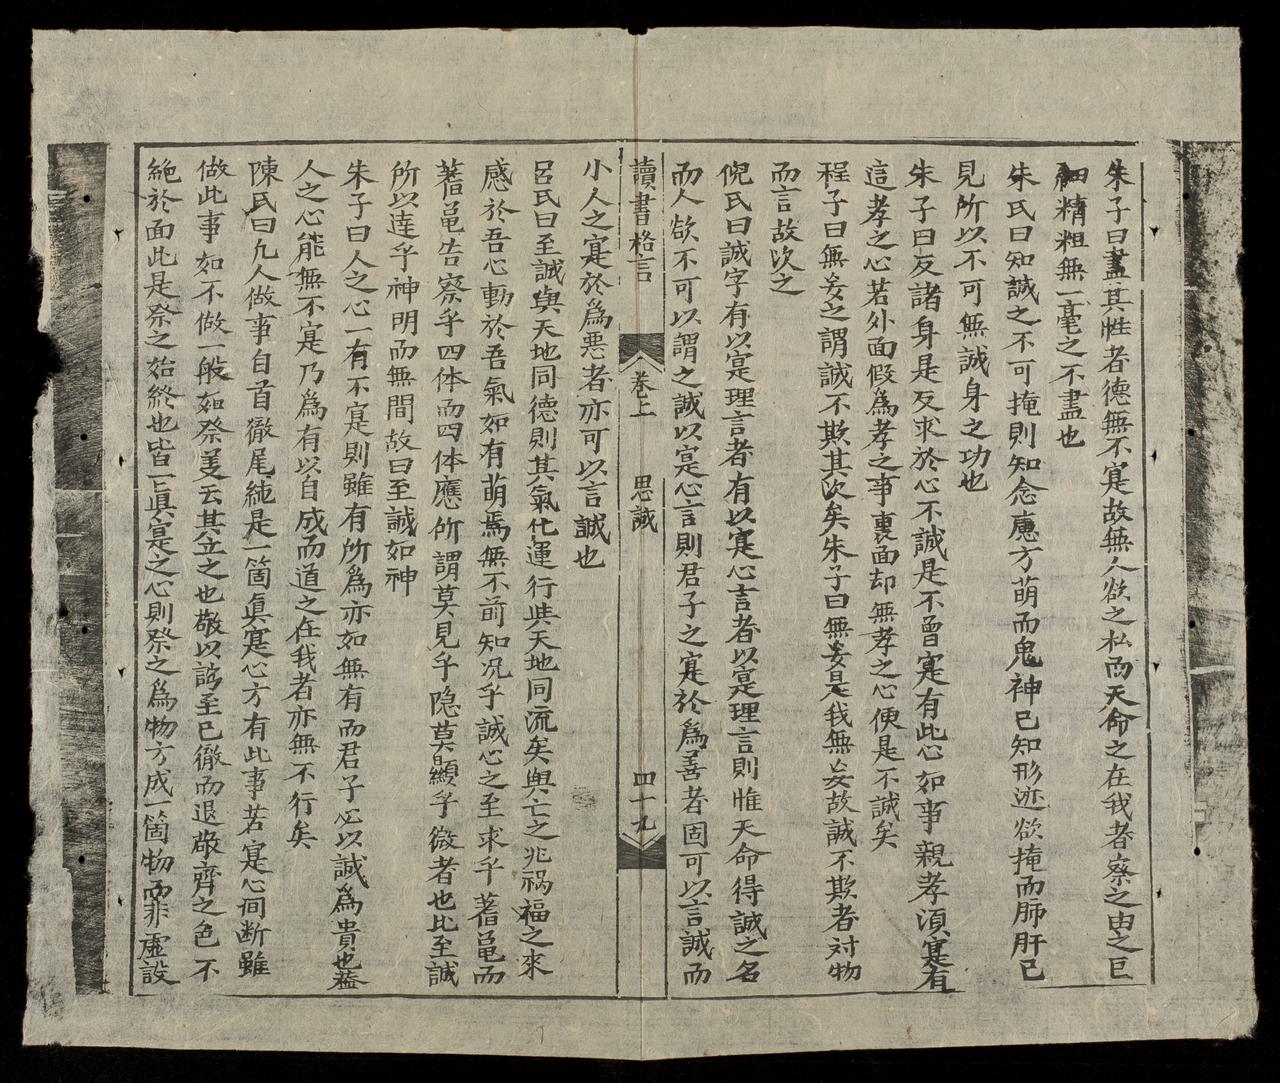 朱子曰盡其性者德無不寔故無人欲之私而天命之在我者察之由之巨
細精粗無一毫之不盡也
朱氏曰知誠之不可掩則知念慮方萌而鬼神已知形迹欲掩而肺肝已
見所以不可無誠身之功也
朱子曰反諸身是反求於心不誠是不曾寔有此心如事親孝湏寔有
這孝之心若外面假為孝之事裏面却無孝之心便是不誠矣
程子曰無妄之謂誠不欺其次矣朱子曰無妄是我無妄故誠不欺者对物
而言故次之
倪氏曰誠字有以寔理言者有以寔心言者以寔理言則惟天命得誠之名
而人欲不可以謂之誠以寔心言則君子之寔於為善者固可以言誠而
讀書格言 卷上 思誠 四十九
小人之寔於為惡者亦可以言誠也
呂氏曰至誠與天地同德則其氣化運行與天地同流矣與亡之兆禍福之來
感於吾心動於吾氣如有萌焉無不前知况乎誠心之至求乎蓍龜而
蓍龜告察乎四体而四体應所謂莫見乎隐莫顯乎微者也比至誠
所以達乎神明而無間故曰至誠如神
朱子曰人之心一有不寔則雖有所為亦如無有而君子必以誠為貴也蓋
人之心能無不寔乃為有以自成而道之在我者亦無不行矣
陳氏曰凢人做事自首徹尾純是一箇眞寔心方有此事若寔心间断雖
做此事如不做一般如祭義云其立之也敬以詘至已徹而退敬齊之色不
絶於面此是祭之始終也皆一眞寔之心則祭之為物方成一箇物而非虛設